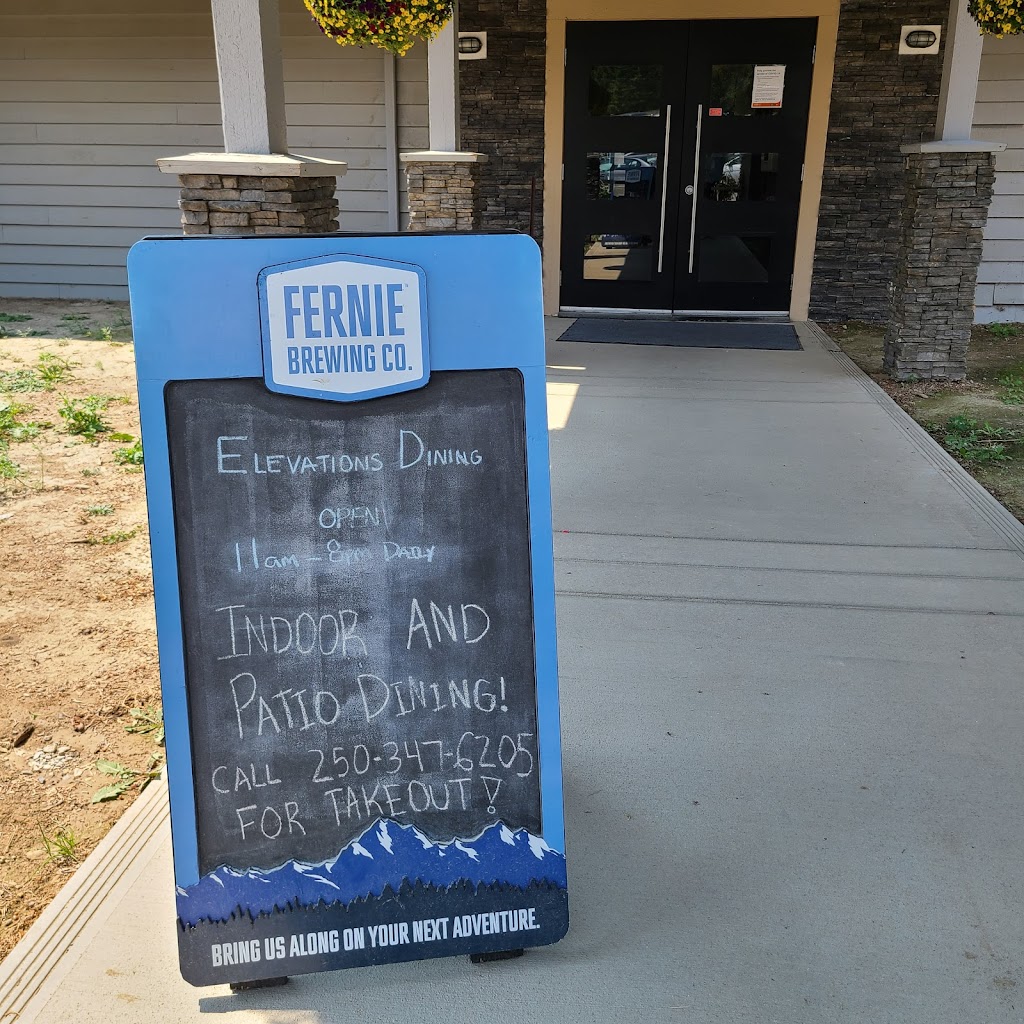 FERNIE
BREWING CO.
ELEVATIONS DINING
OPEN
11am - 8pm DAILY
INDOOR AND
PATIO DINING!
CALL 250-347-6205
FOR TAKEOUT!
BRING US ALONG ON YOUR NEXT ADVENTURE.